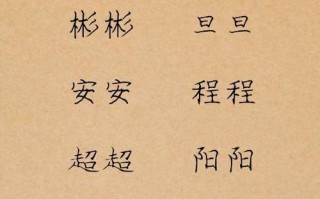 彬彬 旦旦
安安 程程
超超 阳阳